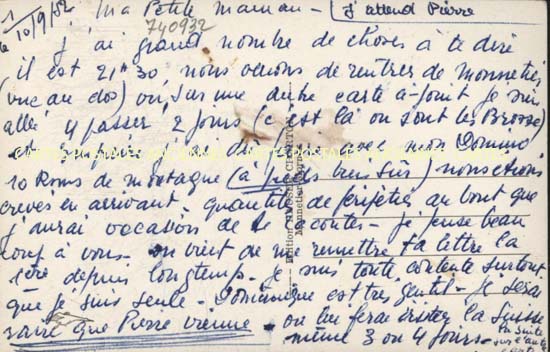 1/ Ma Petite maman - j'attend Pierre
le 10/9/52
740932
j'ai grand nombre de choses à te dire
il est 21h30, nous venons de rentrer de Monnetier
(vue au dos) où, sur une autre carte ci-joint je suis
allée passer 2 jours (c'est là ou sont les Brosse)
et avec mon Domino
10 Kms de montagne (à pieds bien sur) nous étions
crevés en arrivant, quantités de péripéties au bout que
j'aurai occasion de conter - je pense beau
coup à vous - on vient de me remettre ta lettre la
1ère depuis longtemps - je suis toute contente surtout
que je suis seule - Dominique est très gentil - je serai
ravie que Pierre vienne - on lui ferai visiter la Suisse
même 3 ou 4 jours -
la suite
sur l'autre
carte